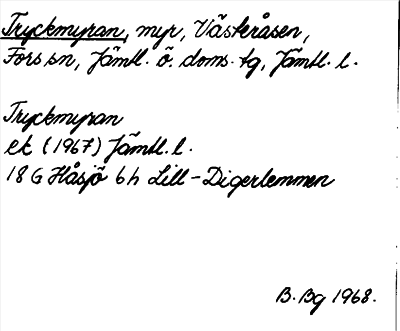 Tryckmyran, myr, Västeråsen,
Fors sn, Jämtl. ö. doms. tg, Jämtl. l.
Tryckmyran
ek (1967) Jämtl. l.
18 G Håsjö 6 h Lill-Digerlemmen
B. Bg 1968.